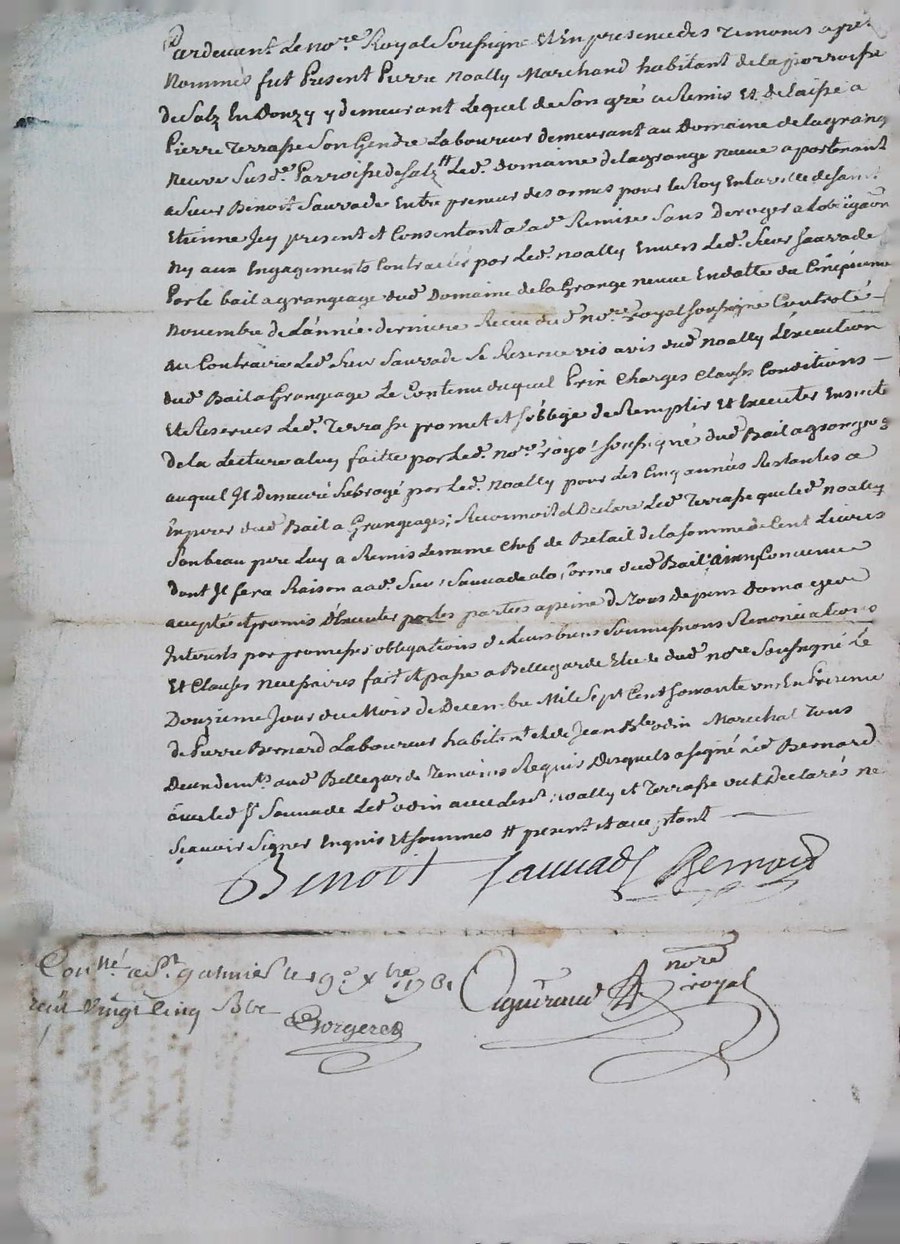 Pardevant Le no.re Royal Soussigné Et En presence des Temoins apres
Nommés fut Present Pierre noally Marchand habitant de la parroisse
de Salz En Donzy y demeurant Lequel de Son gré a Remis Et delaissé a
Pierre Terrasse Son Gendre Laboureur demeurant au Domaine de la grange
neuve Susd.e Parroisse de Salz Led. Domaine delagrange neuve apartenant
a Sieur Benoit Sauvade Entrepreneur des armes pour le Roy En la ville de Saint
Etienne Icy present et Consentant a lad. Remise Sans deroger
Ny aux Engagements Contractés par Led. noally Envers Led. Sieur Sauvade
Par le bail a grangeage dud. Domaine de la Grange neuve En datte du
Novembre de L'année derniere Recu dud. no.re royal soussigné Controlé
au Contraire Led. Sieur Sauvade Se Reserve vis avis dud. noally L'Execution
dud. Bail a Grangeage Le Contenu duquel Prix Charges Clauses Conditions
Et Reserves Led. Terrasse promet et s'oblige de Remplir Et Executer Ensuite
de la Lecture a luy faitte par Led. no.re royal soussigné dud. Bail a grangeage
auquel Il demeure Subrogé par Led. noally pour Les Cinq années Restantes a
Expirer dud. Bail a Grangeages; Reconnoit et Declare Led. Terrasse que led. noally
Son beau pere Luy a Remis Le meme Chef de Betail de la somme de Cent Livres
dont Il fera Raison aud. Sieur Sauvade a la forme dud. Bail ainsy Convenu
accepté et promis d'Executer par les parties a peine de tous Depens Domages
Interets par promesses obligations de leurs biens Soumissions Renonciations
Et Clauses necessaires fait et passé a Bellegarde Etude dud. no.re Soussigné Le
Douzieme Jour du Mois de Decembre Mil Sept Cent Soixante un En Presence
de Pierre Bernard Laboureur habitant et de Jean B.te odin Marechal Tous
Deux aud. Bellegarde Temoins Requis Desquels a signé Led. Bernard
avec led. S.r Sauvade Led. odin avec Les d. noally et Terrasse ont Declarés ne
Sçavoir Signer Enquis Et Sommés # present et acceptant
Benoit Sauvade Bernard
Con.lé a St galmier le 19.e Xbre 1761
reçu vingt Cinq
Gorgeret
Aguiraud no.re royal